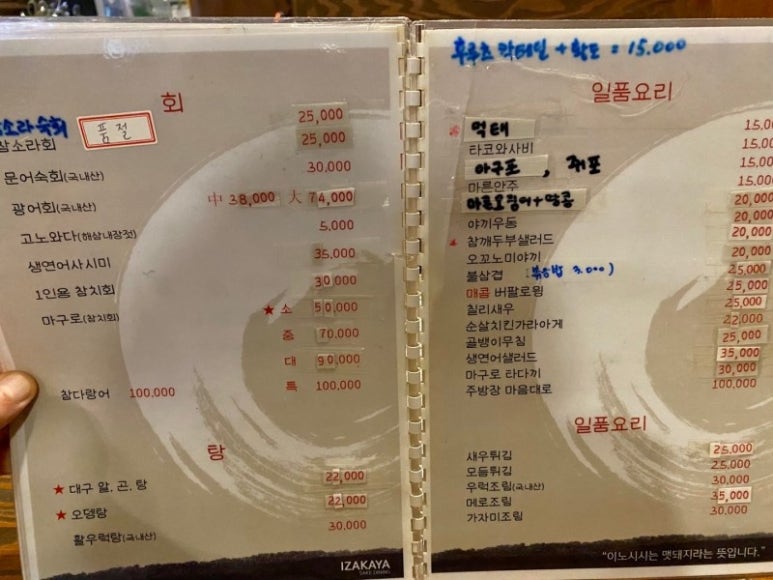 회
소라숙회 품절 25,000
참소라회 25,000
문어숙회(국내산) 30,000
광어회(국내산) 中 38,000 大 74,000
고노와다(해삼내장젓) 5,000
생연어사시미 35,000
1인용 참치회 30,000
마구로(참치회) ★ 소 50,000
중 70,000
대 90,000
참다랑어 100,000 특 100,000
탕
★ 대구 알.곤.탕 22,000
★ 오뎅탕 22,000
활우럭탕(국내산) 30,000
IZAKAYA
후루츠 칵테일 + 황도 = 15.000
일품요리
먹태 15,00
타코와사비 15,00
아구포, 쥐포 15,00
마른안주 15,00
마른오징어+땅콩 20,000
야끼우동 20,000
참깨두부샐러드 20,000
오꼬노미야끼 20,000
불삼겹 볶음밥 3.000) 25,000
매콤 버팔로윙 25,000
칠리새우 25,000
순살치킨가라아게 22,000
골뱅이무침 25,000
생연어샐러드 35,000
마구로 타다끼 30,000
주방장 마음대로 100,000
일품요리
새우튀김 25,000
모듬튀김 25,000
우럭조림(국내산) 30,000
메로조림 35,000
가자미조림 30,000
"이노시시는 맷돼지라는 뜻입니다."